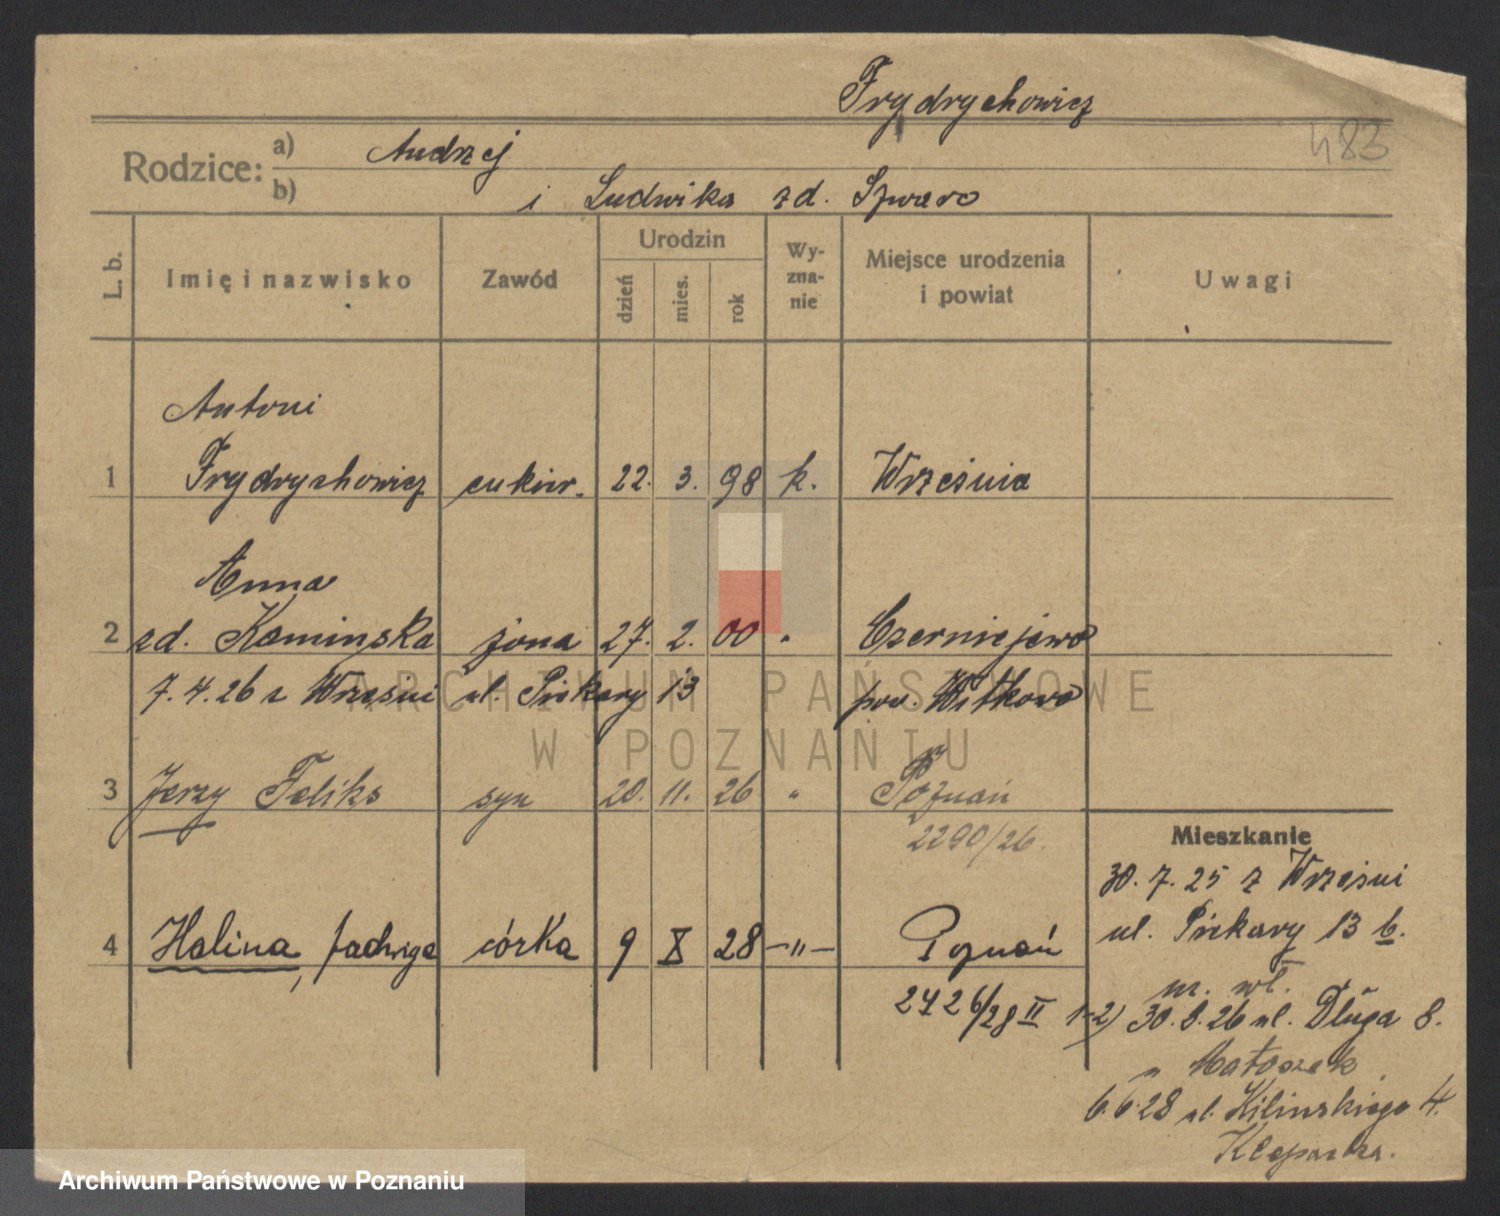 Frydrychowicz
483
Rodzice: a) Andrzej
b) i Ludwika zd. Szwarc
L. b.
Imię i nazwisko
Zawód
Urodzin
dzień
mies.
rok
Wy-
zna-
nie
Miejsce urodzenia
i powiat
Uwagi
Antoni
1 Frydrychowicz cukier. 22. 3. 98 k. Września
Anna
2 zd. Kaminska żona 27. 2. 00 " Czerniejewo
7.4.26 z Wrześni ul. Piekary 13 pow. Witkowo
3 Jerzy Feliks syn 20. 11. 26 " Poznań
2290/26.
Mieszkanie
30. 7. 25 z Wrześni
ul. Piekary 13 b.
4 Halina, Jadwiga córka 9 X 28 —"— Poznań
2426/28 II
nr. wł.
1-2) 30.8.26 ul. Długa 8.
" Matoszek
6.6.28 ul. Kilinskiego 4.
ARCHIWUM PAŃSTWOWE
W POZNANIU
Archiwum Państwowe w Poznaniu